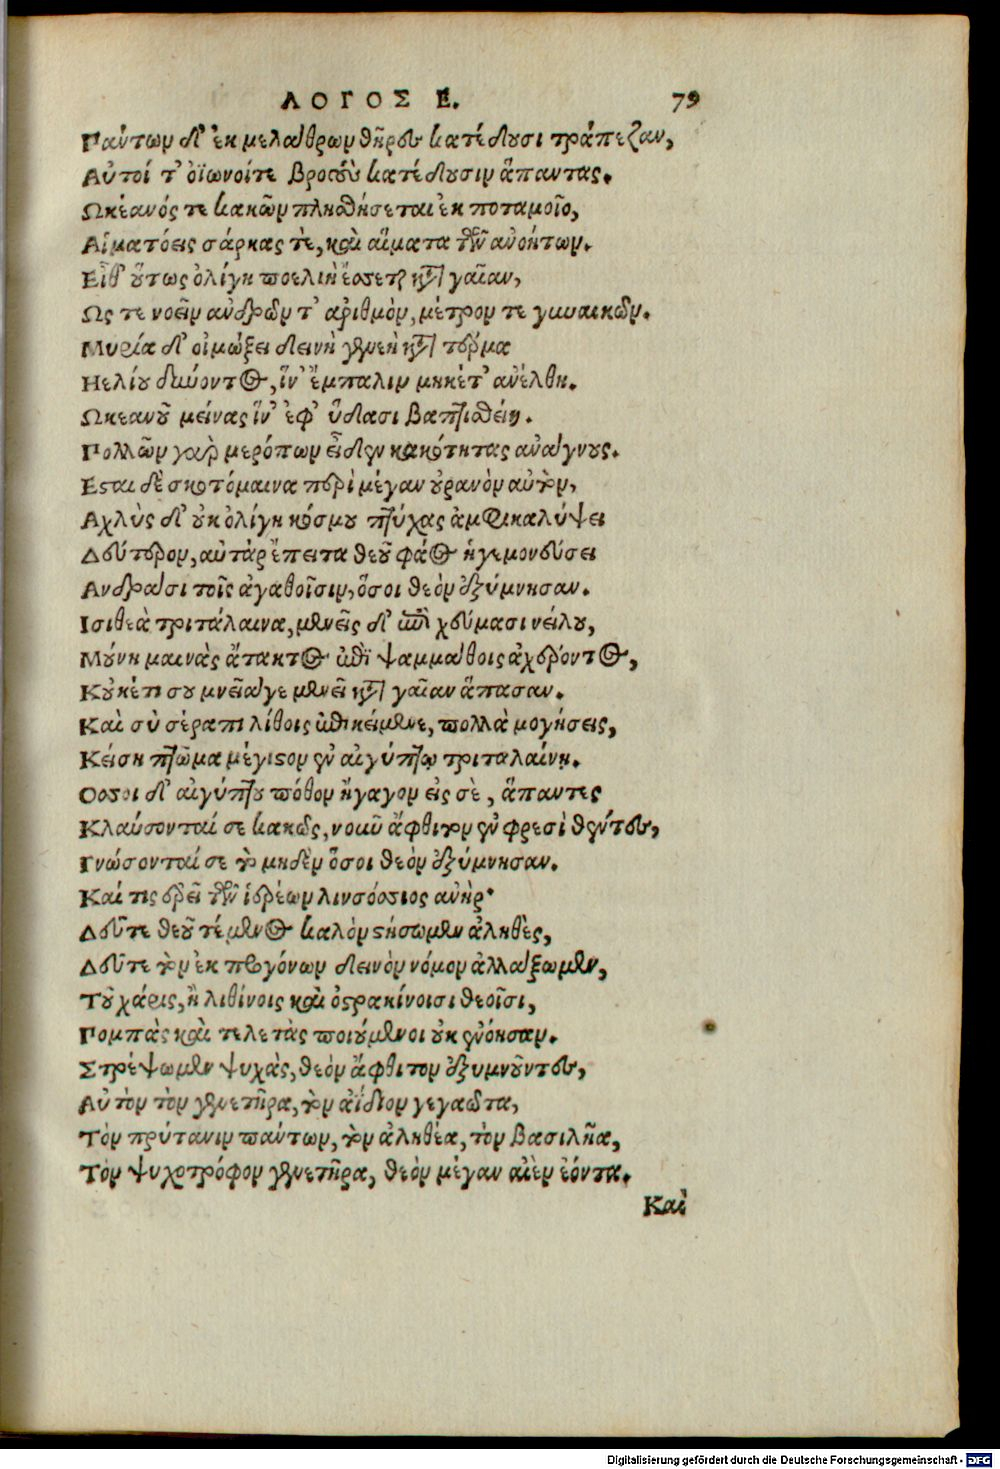 ΛΟΓΟΣ Ε. 79
Πάντων δ' ἐκ μελάθρων θῆρες κατέδουσι τράπεζαν,
Αὐτοί τ' οἰωνοίτε βροτοὺς κατέδουσιν ἅπαντας.
Ωκεανός τε κακῶν πληθήσεται ἐκ ποταμοῖο,
Αἱματόεις σάρκας τὲ, καὶ αἵματα τῶν ἀνοήτων.
Εἶθ' οὕτως ὀλίγη πρελιὴ ἔσσεται κατὰ γαῖαν,
Ως τε νοεῖν ἀνδρῶν τ' ἀριθμὸν, μέτρον τε γυναικῶν.
Μυρία δ' οἰμώξει δεινὴ γενεὴ κατὰ τέρμα
Ηελίου δύνοντος, ἵν' ἔμπαλιν μηκέτ' ἀνέλθῃ.
Ωκεανοῦ μείνας ἵν' ἐφ' ὕδασι βαπτισθείη.
Πολλῶν γὰρ μερόπων εἶδεν κακότητας ἀνάγνους.
Εσται δὲ σκοτόμαινα περὶ μέγαν οὐρανὸν αὐτὸν,
Αχλὺς δ' οὐκ ὀλίγη κόσμου πτύχας ἀμφικαλύψει
Δεύτερον, αὐτὰρ ἔπειτα θεοῦ φάος ἡγεμονεύσει
Ανδράσι τοῖς ἀγαθοῖσιν, ὅσοι θεὸν ἐξύμνησαν.
Ισι θεὰ τριτάλαινα, μενεῖς δ' ἐπὶ χεύμασι νείλου,
Μούνη μαινὰς ἄτακτος ἐπὶ ψαμμάθοις ἀχέροντος,
Κοὐκέτι σου μνεῖάγε μενεῖ κατὰ γαῖαν ἅπασαν.
Καὶ σὺ σέραπι λίθοις ἐπικείμενε, πολλὰ μογήσεις,
Κείσῃ πτῶμα μέγιστον ἐν αἰγύπτῳ τριταλαίνῃ.
Οσσοι δ' αἰγύπτου πόθον ἤγαγον εἰς σὲ, ἅπαντες
Κλαύσονταί σε κακῶς, νοῦν ἄφθιτον ἐν φρεσὶ θέντες,
Γνώσονταί σε τὸ μηδὲν ὅσοι θεὸν ἐξύμνησαν.
Καί τις ἐρεῖ τῶν ἱερέων λινσόσσιος ἀνὴρ·
Δεῦτε θεοῦ τέμενος καλὸν στήσωμεν ἀληθὲς,
Δεῦτε τὸν ἐκ προγόνων δεινὸν νόμον ἀλλάξωμεν,
Τοῦ χάρις, ἢ λιθίνοις καὶ ὀστρακίνοισι θεοῖσι,
Πομπὰς καὶ τελετὰς ποιούμενοι οὐκ ἐνόησαν.
Στρέψωμεν ψυχὰς, θεὸν ἄφθιτον ἐξυμνοῦντες,
Αὐτὸν τὸν γενετῆρα, τὸν ἀΐδιον γεγαῶτα,
Τὸν πρύτανιν πάντων, τὸν ἀληθέα, τὸν βασιλῆα,
Τὸν ψυχοτρόφον γενετῆρα, θεὸν μέγαν αἰὲν ἐόντα.
Καὶ
Digitalisierung gefördert durch die Deutsche Forschungsgemeinschaft - DFG